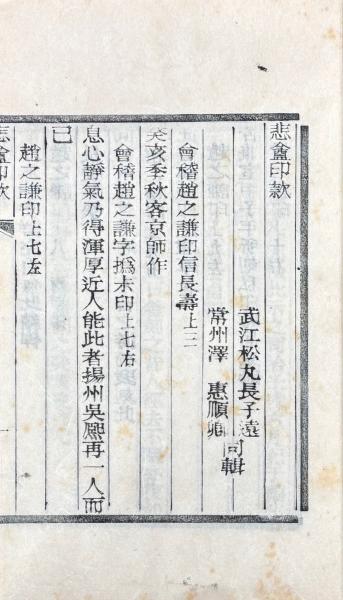 悲盦印款
武江松丸長子遠
常州澤 惠順卿
同輯
會稽趙之謙印信長壽上三
癸亥季秋客京師作
會稽趙之謙字撝未印上七右
息心靜氣乃得渾厚近人能此者揚州吳熙再一人而
已
趙之謙印上七左
悲盦印款
一